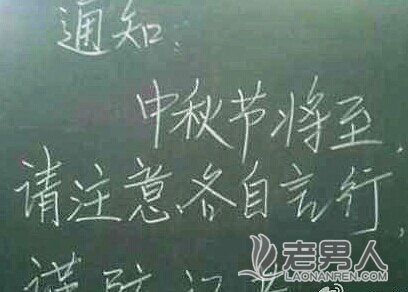 通知:
中秋节将至,
请注意各自言行,
谨防记者
老男人
LAONANREN.COM